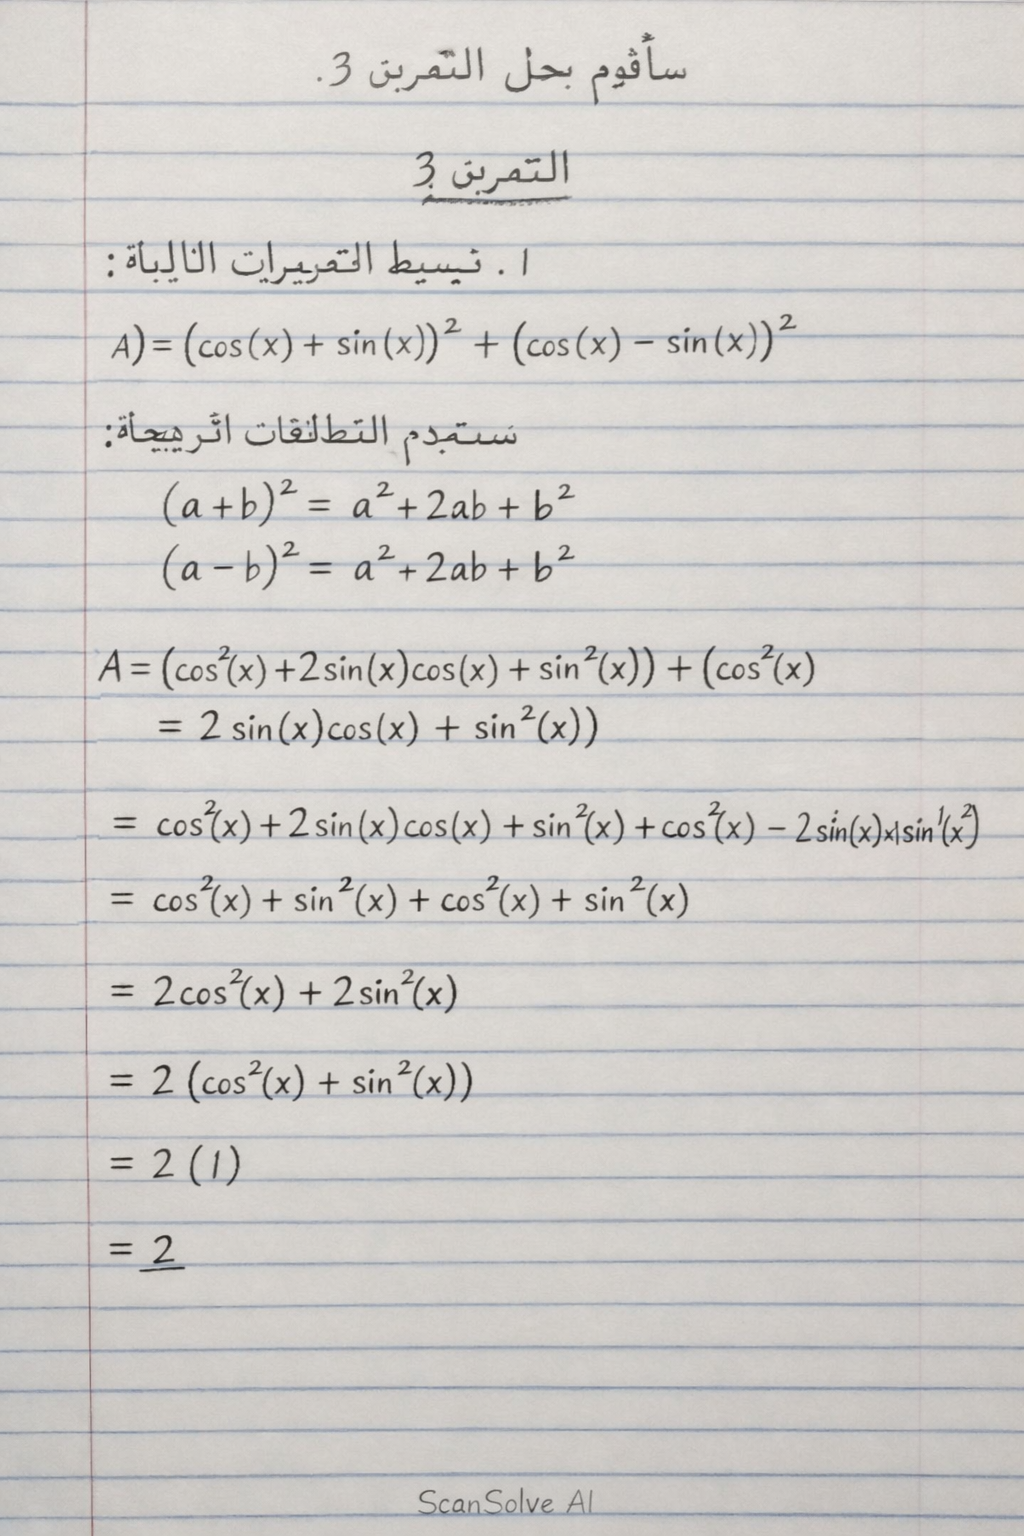 سأقوم بحل التمرين 3.
التمرين 3
1. تبسيط التعبيرات التالية:
A) = (cos(x) + sin(x))² + (cos(x) − sin(x))²
(a + b)² = a² + 2ab + b²
(a − b)² = a² + 2ab + b²
A = (cos²(x) + 2sin(x)cos(x) + sin²(x)) + (cos²(x)
= 2 sin(x)cos(x) + sin²(x))
= cos²(x) + 2sin(x)cos(x) + sin²(x) + cos²(x) − 2sin(x)
= cos²(x) + sin²(x) + cos²(x) + sin²(x)
= 2cos²(x) + 2sin²(x)
= 2 (cos²(x) + sin²(x))
= 2 (1)
= 2
ScanSolve AI